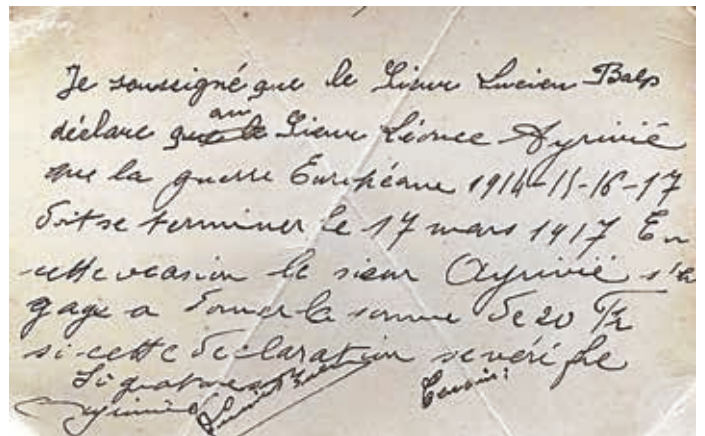 Je soussigné que le Sieur Lucien Balp
déclare que le au Sieur Léonce Ayrivié
que la guerre Européane 1914-15-16-17
doit se terminer le 17 mars 1917 En
cette ocasion le sieur Ayrivié s'en
gage a donner la somme de 20 Frs
si cette déclaration se vérifie
Signatures Témoin:
Ayrivié Lucien Balp